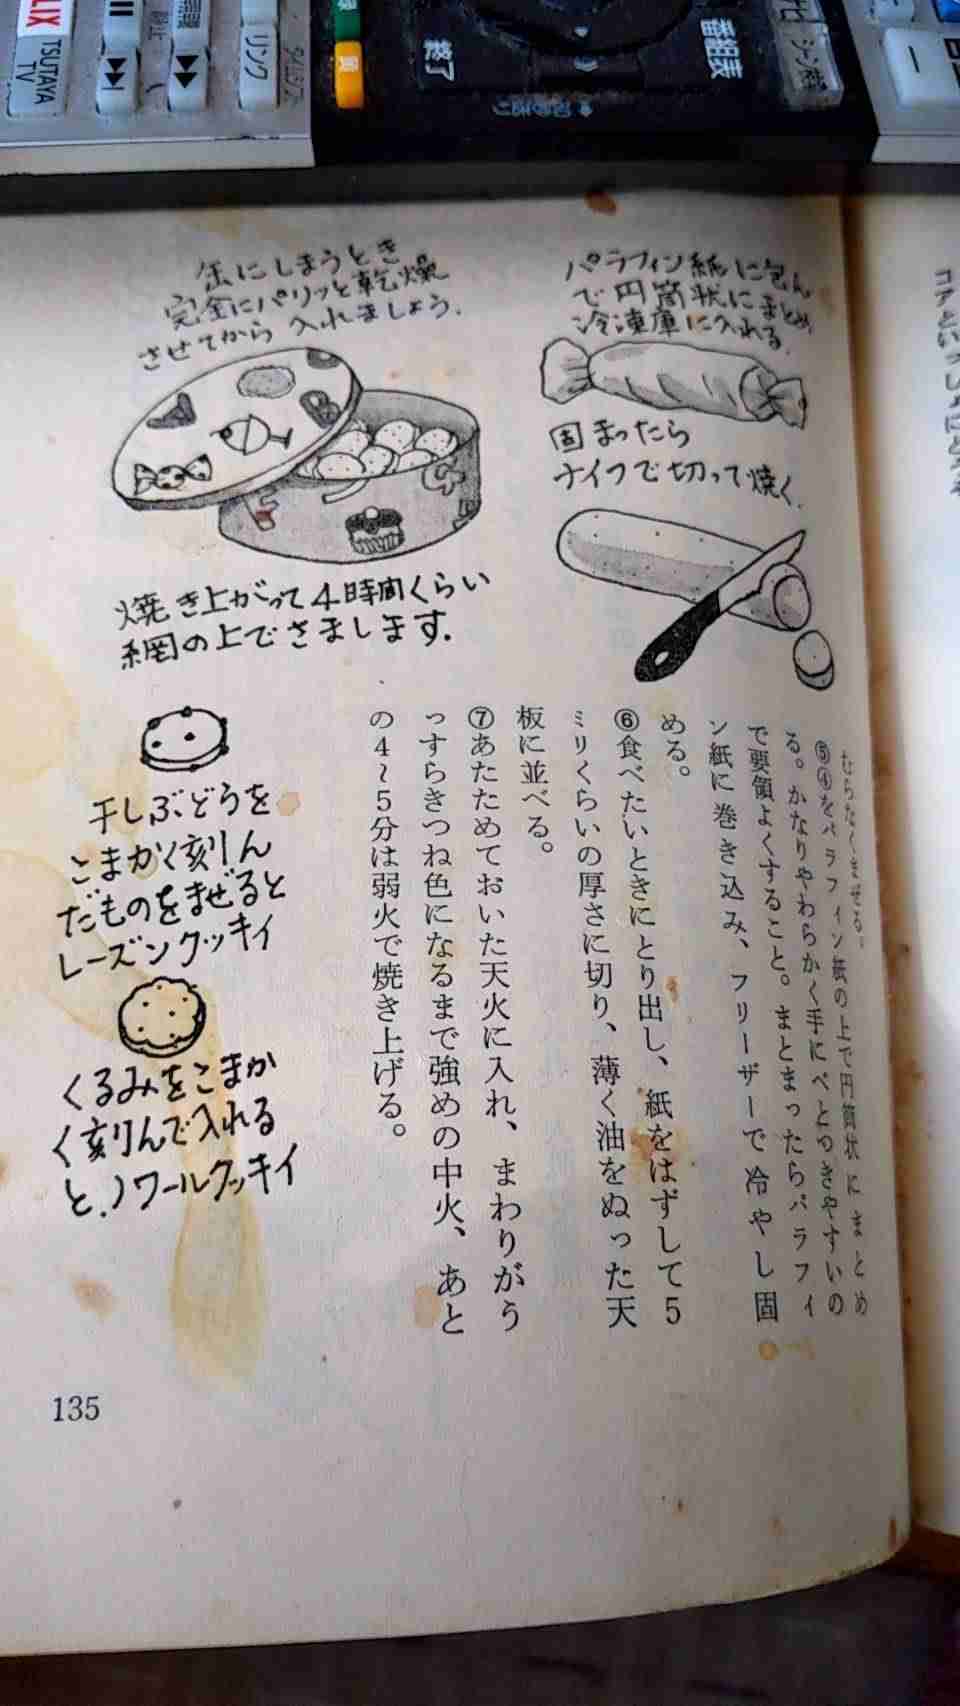 LIX
TSUTAYA
TV
リンク
終了
番組表
パラフィン紙に包ん
で円筒状にまとめ、
冷凍庫に入れる。
固まったら
ナイフで切って焼く。
缶にしまうとき
完全にパリッと乾燥
させてから入れましょう。
焼き上がって4時間くらい
網の上でさまします。
むらなくまぜる。
⑤④をパラフィン紙の上で円筒状にまとめ
る。かなりやわらかく手にべとつきやすいの
で要領よくすること。まとまったらパラフィ
ン紙に巻き込み、フリーザーで冷やし固
める。
⑥食べたいときにとり出し、紙をはずして5
ミリくらいの厚さに切り、薄く油をぬった天
板に並べる。
⑦あたためておいた天火に入れ、まわりがう
っすらきつね色になるまで強めの中火、あと
の4〜5分は弱火で焼き上げる。
干しぶどうを
こまかく刻ん
だものをまぜると
レーズンクッキイ
くるみをこまか
く刻んで入れる
と、ノワールクッキイ
135